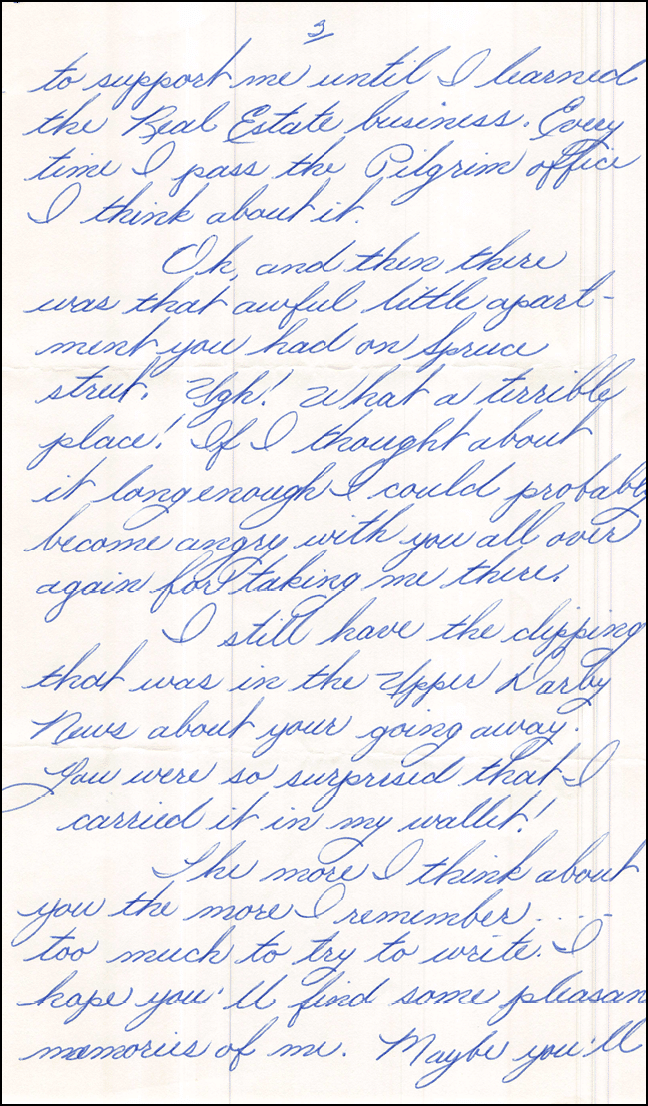 3
to support me until I learned
the Real Estate business. Every
time I pass the Pilgrim office
I think about it.
Oh, and then there
was that awful little apart-
ment you had on Spruce
street. Ugh! What a terrible
place! If I thought about
it long enough I could probably
become angry with you all over
again for taking me there.
I still have the clipping
that was in the Upper Darby
News about your going away.
You were so surprised that I
carried it in my wallet!
The more I think about
you the more I remember . . . .
too much to try to write. I
hope you'll find some pleasan
memories of me. Maybe you'll